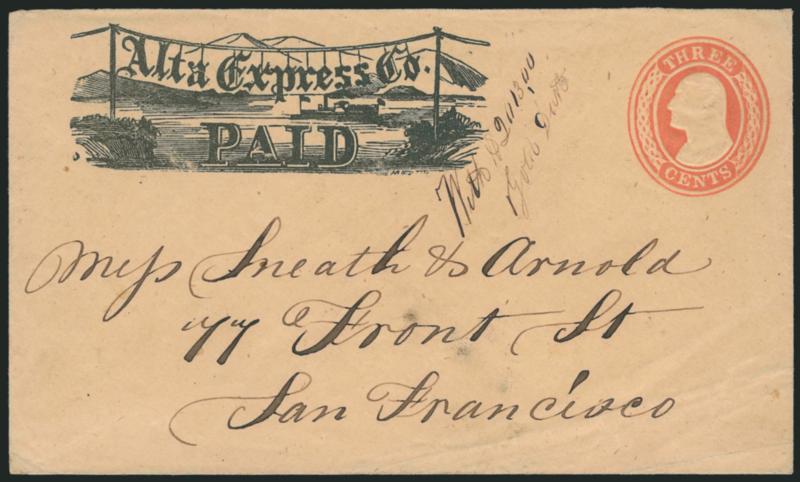 Alta Express Co.
PAID
THREE
CENTS
With $2013,00
Gold Dust
Mess Sneath & Arnold
77 Front St
San Francisco